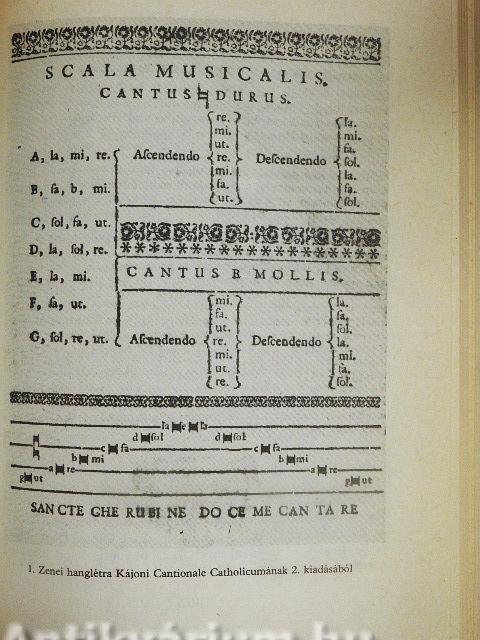 SCALA MUSICALIS.
CANTUS ♮ DURUS.
A, la, mi, re.
B, fa, b, mi.
C, ſol, fa, ut.
D, la, ſol, re.
E, la, mi.
F, fa, ut.
G, ſol, re, ut.
Aſcendendo
re.
mi.
ut.
re.
mi.
fa.
ut.
Deſcendendo
la.
mi.
fa.
ſol.
la.
fa.
ſol.
CANTUS B MOLLIS.
Aſcendendo
mi.
fa.
ut.
re.
mi.
ut.
re.
Deſcendendo
la.
fa.
ſol.
la.
mi.
fa.
ſol.
la e la
d ſol d ſol
c fa c fa
b mi b mi
a re a re
g ut g ut
SANCTE CHERUBINE DOCE ME CANTARE
1. Zenei hanglétra Kájoni Cantionale Catholicumának 2. kiadásából
Antikvárium.hu